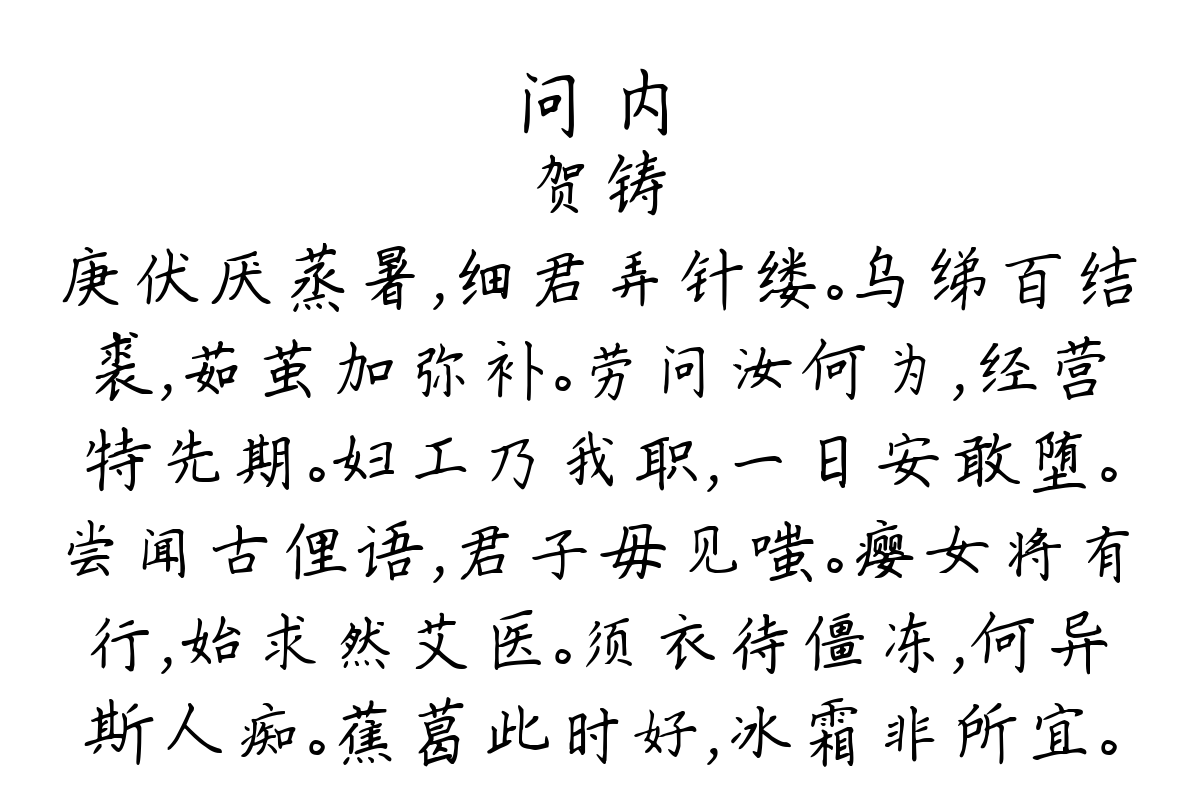 问内
贺铸
庚伏厌蒸暑,细君弄针缕。乌绨百结
裘,茹茧加弥补。劳问汝何为,经营
特先期。妇工乃我职,一日安敢堕。
尝闻古俚语,君子毋见嗤。瘿女将有
行,始求然艾医。须衣待僵冻,何异
斯人痴。蕉葛此时好,冰霜非所宜。